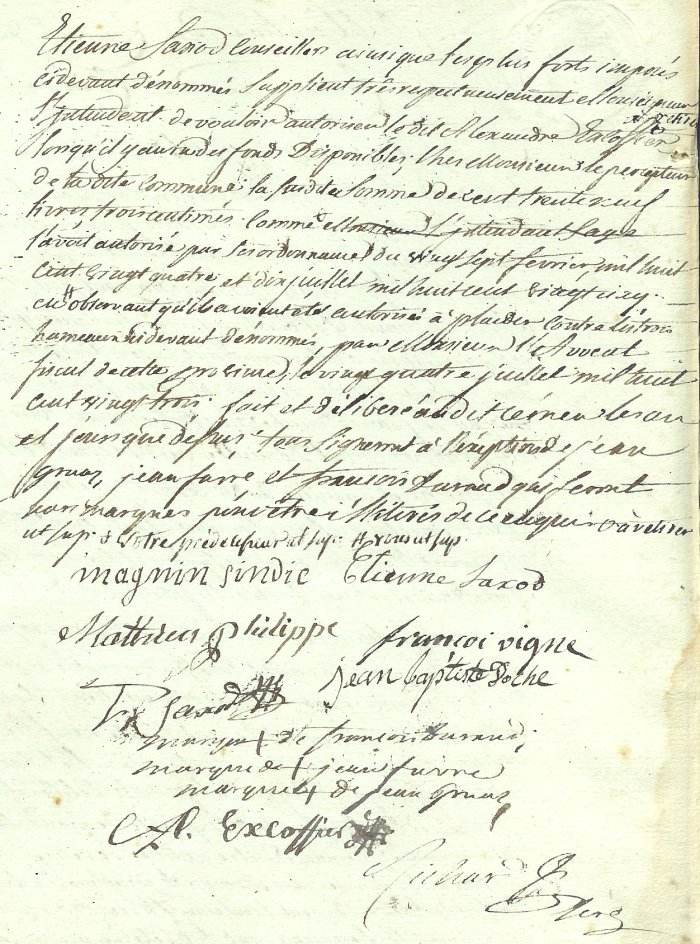 Etienne Saxod Conseillers ainsi que les plus forts imposés
cidevant dénommés Supplient très respectueusement Monsieur
l'Intendant de vouloir autoriser le dit Alexandre Excoffier à retirer
lorsqu'il y aura des fonds Disponibles, chez Monsieur le percepteur
de la dite Commune la susdite Somme de cent trente neuf
livres trois centimes Comme Monsieur l'Intendant
l'avoit autorisé par Ses ordonnances du vingt Sept février mil huit
cent vingt quatre et juillet mil huit cent vingt cinq
en observant qu'ils avoient étés autorisés à plaider Contre les trois
hameaux cidevant dénommés, par Monsieur l'Avocat
fiscal de cette province, le vingt quatre juillet mil huit
cent vingt trois. fait et délibéré audit Cerneu les an
et jours que dessus. tous Signeront à l'éxeption de jean
Gruaz, jean favre et françois Durand qui feront
leurs marques pour être illitérés de ce enquis à retirer
ut sup. votre prédecesseur ut sup. ut sup.
magnin sindic Etienne Saxod
Mathieu Philippe françoi vigne
jean baptiste Poche
Saxod
marque + de francois Durand;
marque de + jean favre
marque + de jean Gruaz
A. Excoffier
Richard